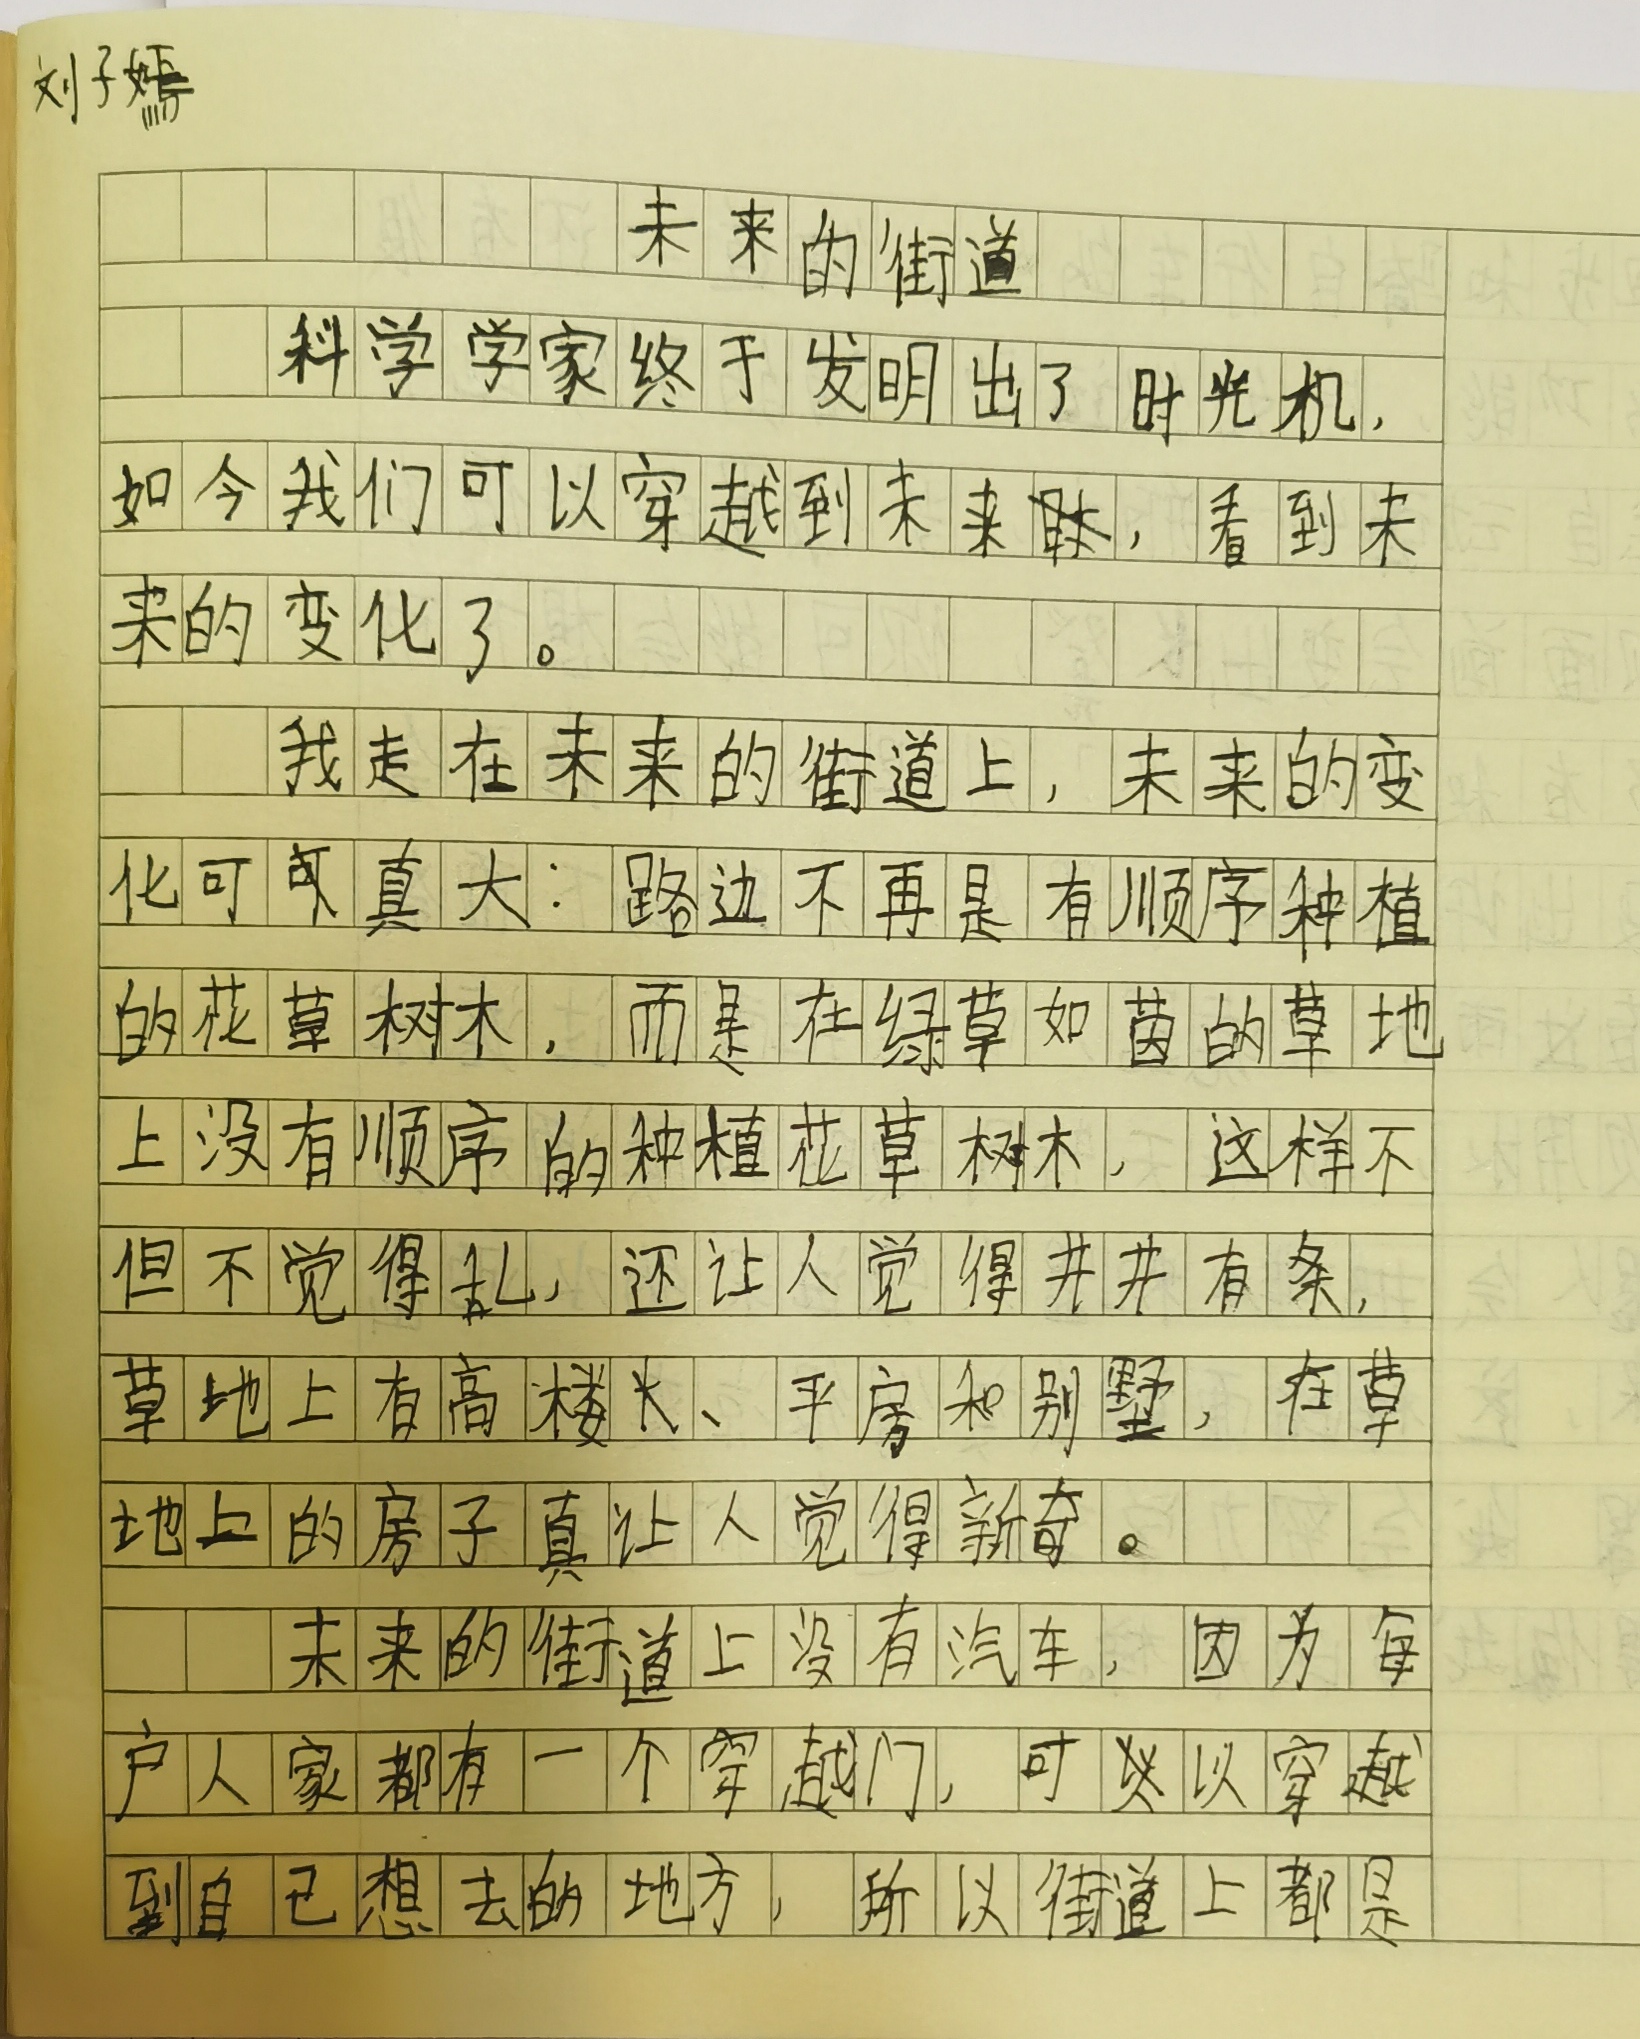 刘子嫣
未来的街道
科学学家终于发明出了时光机，
如今我们可以穿越到未来，看到未
来的变化了。
我走在未来的街道上，未来的变
化可真大：路边不再是有顺序种植
的花草树木，而是在绿草如茵的草地
上没有顺序的种植花草树木，这样不
但不觉得乱，还让人觉得井井有条，
草地上有高楼大、平房和别墅，在草
地上的房子真让人觉得新奇。
未来的街道上没有汽车，因为每
户人家都有一个穿越门，可以穿越
到自己想去的地方，所以街道上都是